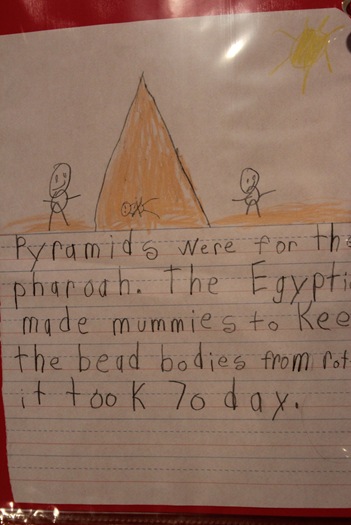 Pyramids were for th
pharoah. The Egypti
made mummies to Kee
the bead bodies from rot
it took 70 day.